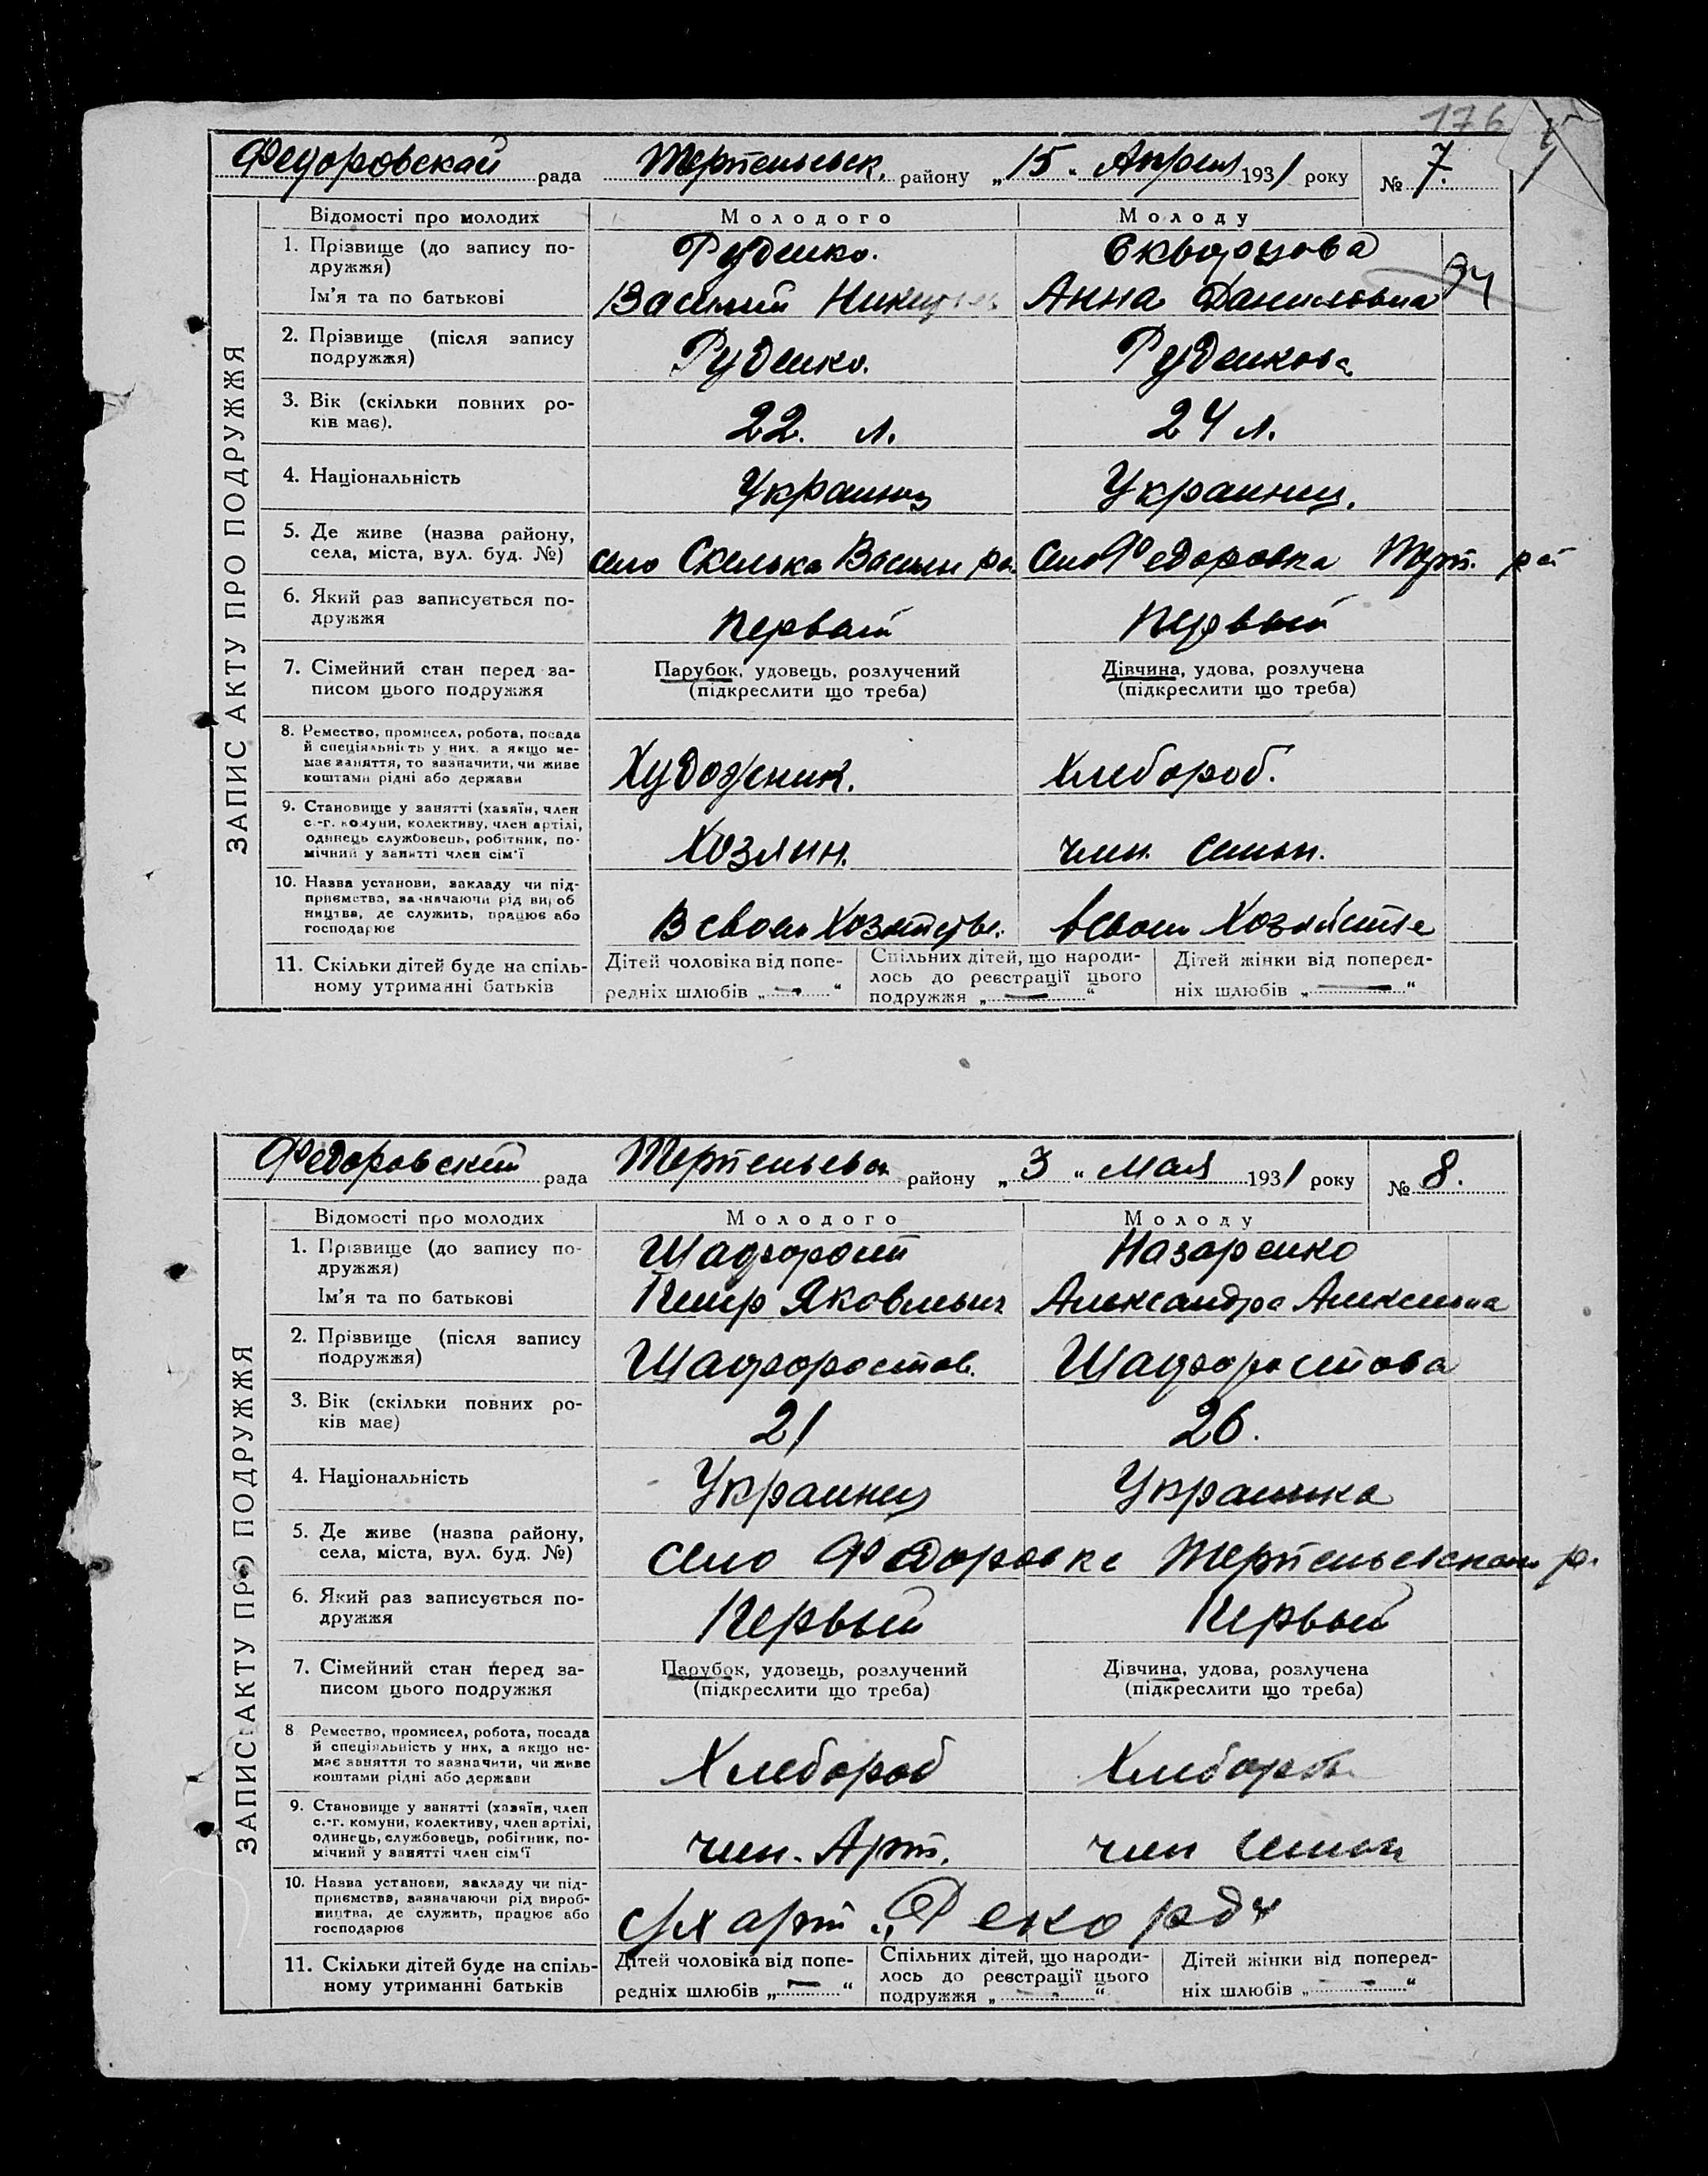 176
Федоровской рада Терпеньевск. району „15“ Апреля 1931 року № 7.
Відомості про молодих Молодого Молоду
ЗАПИС АКТУ ПРО ПОДРУЖЖЯ
1. Прізвище (до запису по- Руденко. Скворцова
дружжя)
Ім’я та по батькові Василий Анна Даниловна
2. Прізвище (після запису Руденко. Руденкова
подружжя)
3. Вік (скільки повних ро- 22. л. 24 л.
ків має).
4. Національність Украинец Украинец.
5. Де живе (назва району,
села, міста, вул. буд. №) село Скелька Васильев ра. Село Федоровка Терп. рай
6. Який раз записується по- первый первый
дружжя
7. Сімейний стан перед за- Парубок, удовець, розлучений Дівчина, удова, розлучена
писом цього подружжя (підкреслити що треба) (підкреслити що треба)
8. Ремество, промисел, робота, посада
й спеціяльність у них, а якщо не-
має заняття, то зазначити, чи живе Художник. Хлебороб.
коштами рідні або держави
9. Становище у занятті (хазяїн, член
с.-г. комуни, колективу, член артілі,
одинець службовець, робітник, по- Хозяин. член семьи.
мічний у занятті член сім’ї
10. Назва установи, закладу чи під-
приємства, зазначаючи рід вироб
ництва, де служить, працює або В своем Хозяйстве. в своем Хозяйстве
господарює
11. Скільки дітей буде на спіль- Дітей чоловіка від попе- Спільних дітей, що народи- Дітей жінки від поперед-
ному утриманні батьків редніх шлюбів „—“ лось до реєстрації цього ніх шлюбів „—“
подружжя „—“
Федоровский рада Терпеньевск району „3“ Мая 1931 року № 8.
Відомості про молодих Молодого Молоду
ЗАПИС АКТУ ПРО ПОДРУЖЖЯ
1. Прізвище (до запису по- Назаренко
дружжя)
Ім’я та по батькові Петр Яковлевич Александра Алексеевна
2. Прізвище (після запису Шафоростов. Шафоростова
подружжя)
3. Вік (скільки повних ро- 21 26.
ків має)
4. Національність Украинец Украинка
5. Де живе (назва району,
села, міста, вул. буд. №) село Федоровке Терпеньевского р.
6. Який раз записується по- Первый Первый
дружжя
7. Сімейний стан перед за- Парубок, удовець, розлучений Дівчина, удова, розлучена
писом цього подружжя (підкреслити що треба) (підкреслити що треба)
8 Ремество, промисел, робота, посада
й спеціяльність у них, а якщо не-
має заняття то зазначити, чи живе Хлебороб Хлебороб
коштами рідні або держави
9. Становище у занятті (хазяїн, член
с.-г. комуни, колективу, член артілі,
одинець, службовець, робітник, по- член. Арт. член семьи
мічний у занятті член сім’ї
10. Назва установи, закладу чи під-
приємства, зазначаючи рід вироб-
ництва, де служить, працює або с/х арт. „Рекорд“
господарює
11. Скільки дітей буде на спіль- Дітей чоловіка від попе- Спільних дітей, що народи- Дітей жінки від поперед-
ному утриманні батьків редніх шлюбів „—“ лось до реєстрації цього ніх шлюбів „—“
подружжя „—“